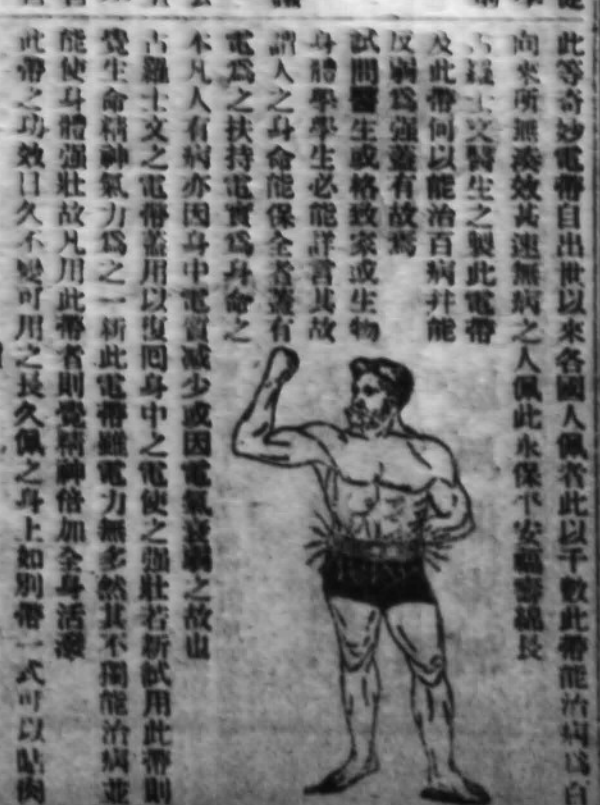 此等奇妙電帶自出世以來各國人佩者此以千數此帶能治病爲百
向來所無湊效甚速無病之人佩此永保平安福壽綿長
古羅士文醫生之製此電帶
及此帶何以能治百病并能
反弱爲强蓋有故焉
試問醫生或格致家或生物
身體學學生必能詳言其故
謂人之身命能保全者蓋有
電爲之扶持電實爲身命之
本凡人有病亦因身中電質減少或因電氣衰弱之故也
古羅士文之電帶蓋用以復囘身中之電使之强壯若新試用此帶則
覺生命精神氣力爲之一新此電帶雖電力無多然其不獨能治病並
能使身體强壯故凡用此帶者則覺精神倍加全身活潑
此帶之功效日久不變可用之長久佩之身上如別帶一式可以貼肉